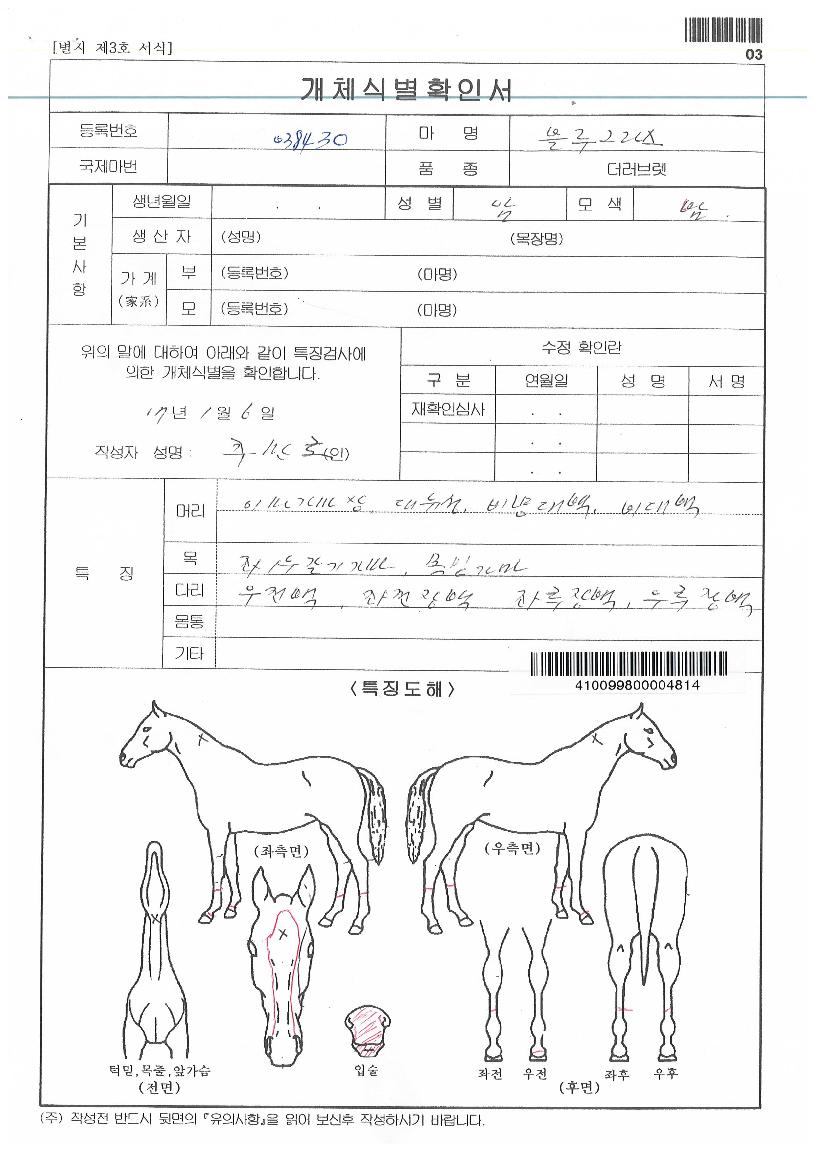 [별지 제3호 서식]
03
개체식별확인서
등록번호 038430 마 명 블루
국제마번 품 종 더러브렛
기본사항
생년월일 . . 성 별 암 모 색 밤
생 산 자 (성명) (목장명)
가 계 (家系)
부 (등록번호) (마명)
모 (등록번호) (마명)
위의 말에 대하여 아래와 같이 특징검사에
의한 개체식별을 확인합니다.
17년 1월 6일
작성자 성명 : (인)
수정 확인란
구 분 연월일 성 명 서 명
재확인심사 . .
. .
. .
특 징
머리 대유성, 비대백
목
다리 우전백, 좌전장백 좌후장백, 우후장백
몸통
기타
410099800004814
<특징도해>
(좌측면) (우측면)
턱밑,목줄,앞가슴
(전면)
입술
좌전 우전 좌후 우후
(후면)
(주) 작성전 반드시 뒷면의 『유의사항』을 읽어 보신후 작성하시기 바랍니다.